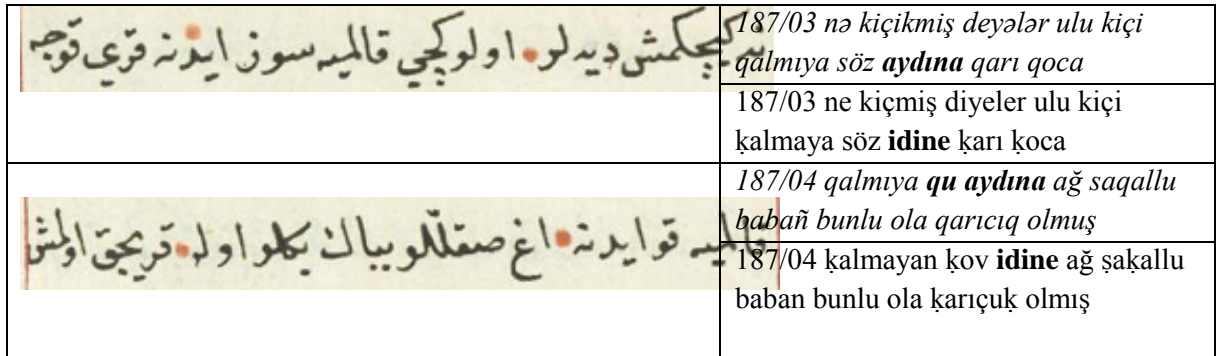 نه كيچكمش ديه لر • اولو كچي قالميه سوز ايدنه قري قوجه
187/03 nə kiçikmiş deyələr ulu kiçi
qalmıya söz aydına qarı qoca
187/03 ne kiçmiş diyeler ulu kiçi
ḳalmaya söz idine ḳarı ḳoca
قالميه قو ايدنه • اغ صقللّو بباك بكلو اوله • قريجق اولمش
187/04 qalmıya qu aydına ağ saqallu
babañ bunlu ola qarıcıq olmuş
187/04 ḳalmayan ḳov idine ağ ṣaḳallu
baban bunlu ola ḳarıçuḳ olmış